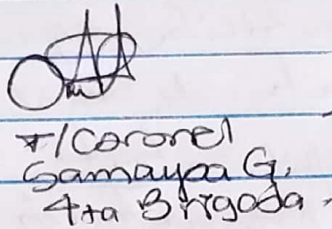 T/Coronel
Samayoa G.
4ta Brigada